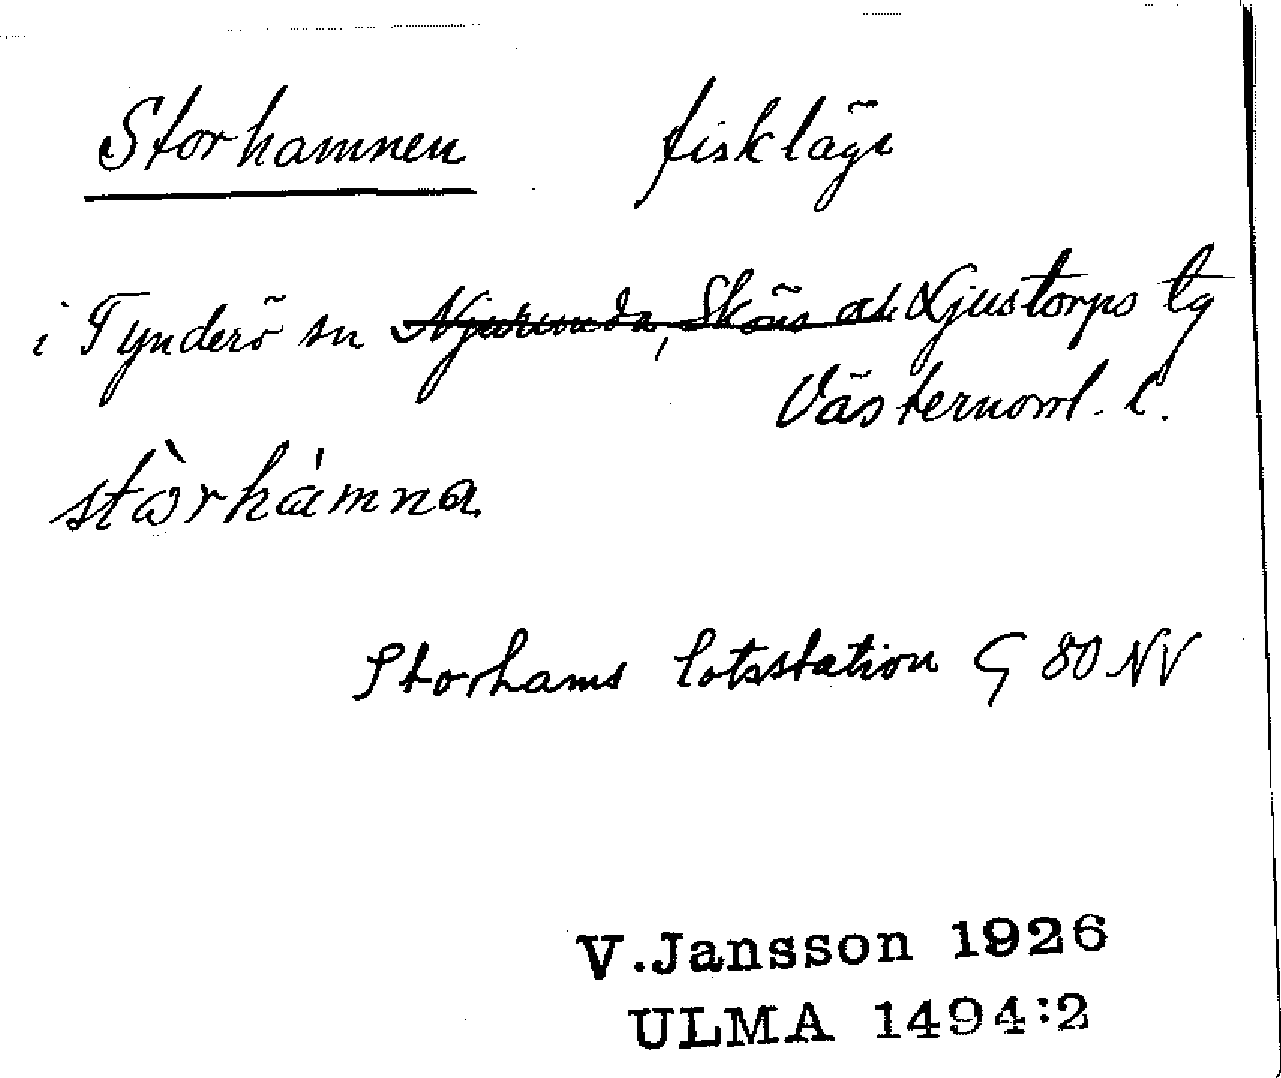 Storhamnen fiskläge
i Tynderö sn Njurunda, Sköns o. Ljustorps tg
Västernorrl. l.
stòrhàmna
Storhams lotsstation G 80 NV
V.Jansson 1926
ULMA 1494:2